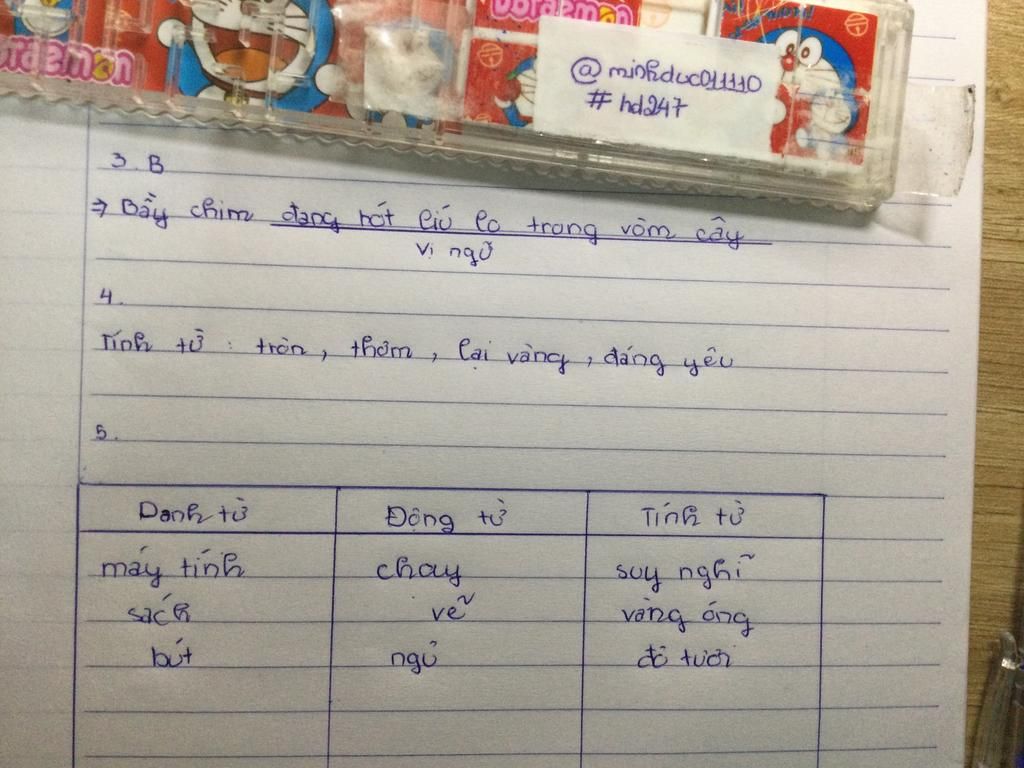 Doraemon
Doraemon
@minhduc011110
#hd247
3. B
⇒ Bầy chim đang hót líu lo trong vòm cây
Vị ngữ
4.
Tính từ : tròn, thơm, lại vàng, đáng yêu
5.
Danh từ Động từ Tính từ
máy tính chay suy nghĩ
sách vẽ vàng óng
bút ngủ đỏ tươi